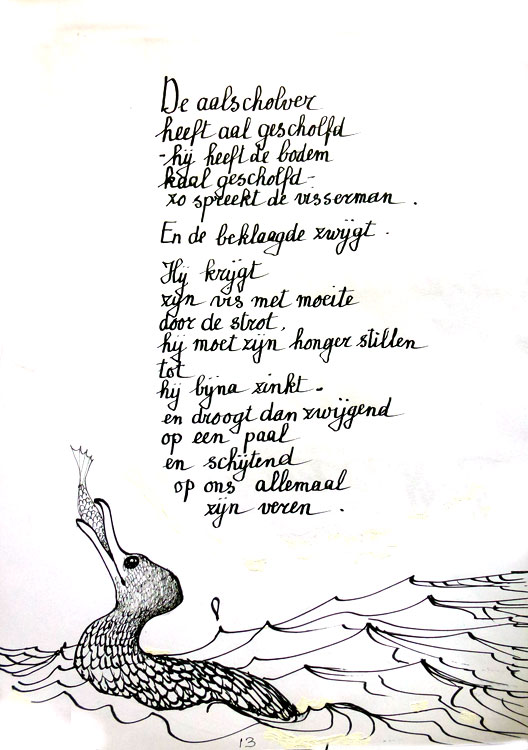 De aalscholver
heeft aal gescholfd
- hij heeft de bodem
kaal gescholfd -
zo spreekt de visserman .
En de beklaagde zwijgt .
Hij krijgt
zijn vis met moeite
door de strot,
hij moet zijn honger stillen
tot
hij bijna zinkt -
en droogt dan zwijgend
op een paal
en schijtend
op ons allemaal
zijn veren .
13